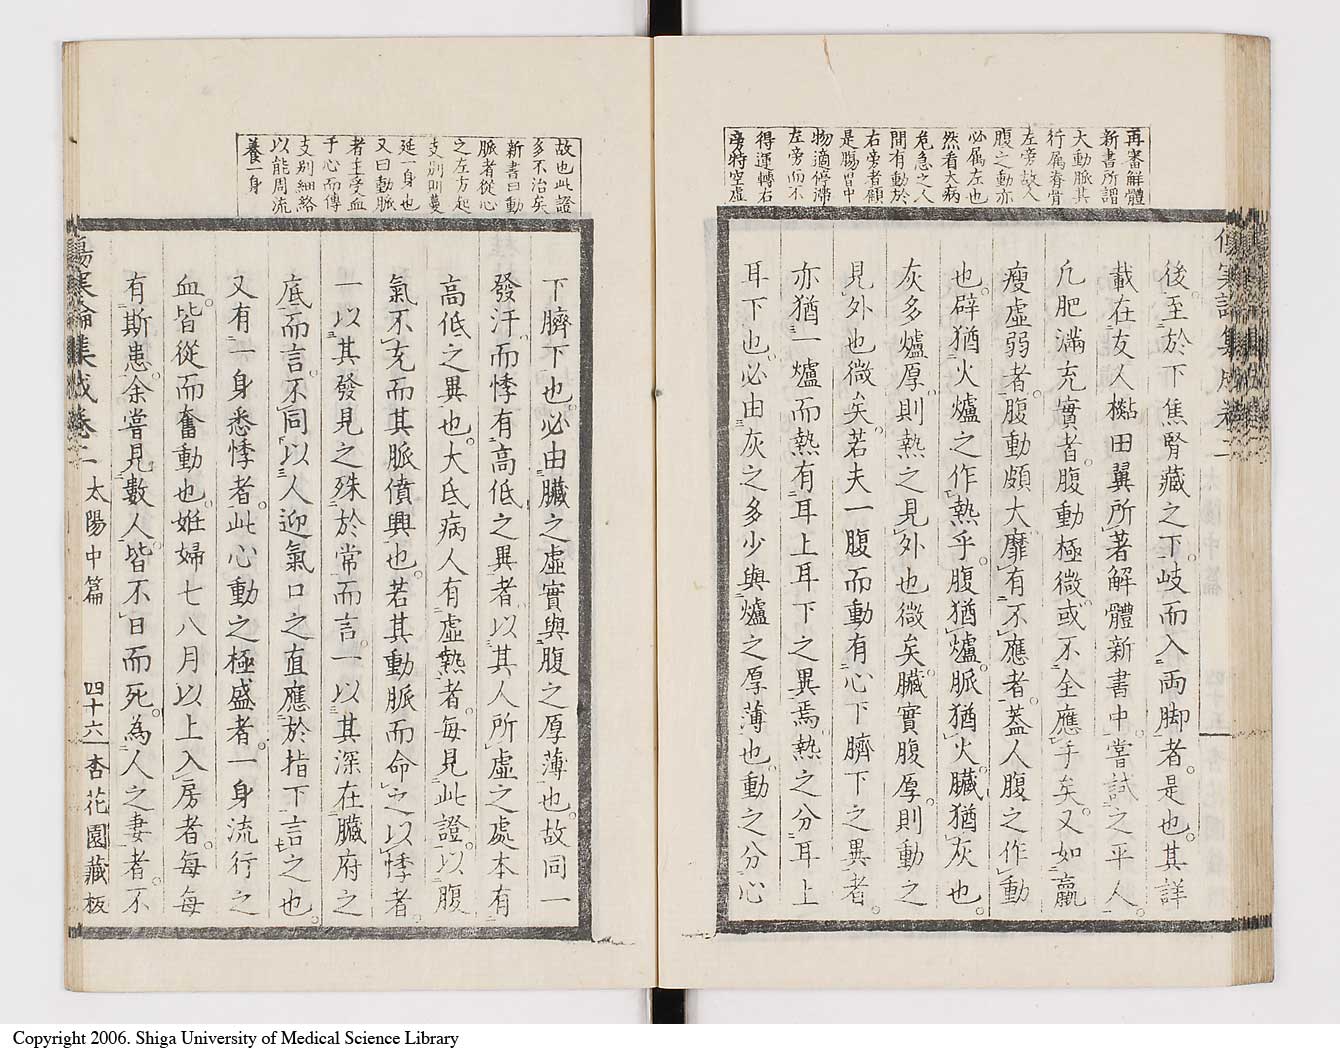 再審解體
新書所謂
大動脈其
行属脊骨
左旁故人
腹之動亦
必属左也
然看大病
危急之人
間有動於
右旁者顧
是腸胃中
物適停滞
左旁而不
得運轉右
旁特空虚
後至於下焦腎藏之下岐而入両脚者是也其詳
載在友人㯿田翼所著解體新書中嘗試之平人
凢肥満充實者腹動極微或不全應手矣又如羸
瘦虚弱者腹動頗大靡有不應者蓋人腹之作動
也辟猶火爐之作熱乎腹猶爐脈猶火臟猶灰也
灰多爐厚則熱之見外也微矣臟實腹厚則動之
見外也微矣若夫一腹而動有心下臍下之異者
亦猶一爐而熱有耳上耳下之異焉熱之分耳上
耳下也必由灰之多少與爐之厚薄也動之分心
故也此證
多不治矣
新書曰動
脈者從心
之左方起
支別而蔓
延一身也
又曰動脈
者主受血
于心而傳
支別細絡
以能周流
養一身
下臍下也必由臟之虚實與腹之厚薄也故同一
發汗而悸有高低之異者以其人所虚之處本有
高低之異也大氐病人有虚熱者每見此證以腹
氣不充而其脈僨興也若其動脈而命之以悸者
一以其發見之殊於常而言一以其深在臟府之
底而言不同以人迎氣口之直應於指下言之也
又有一身悉悸者此心動之極盛者一身流行之
血皆從而奮動也妊婦七八月以上入房者每每
有斯患余嘗見數人皆不日而死為人之妻者不
傷寒論集成卷二 太陽中篇 四十六 杏花園藏板